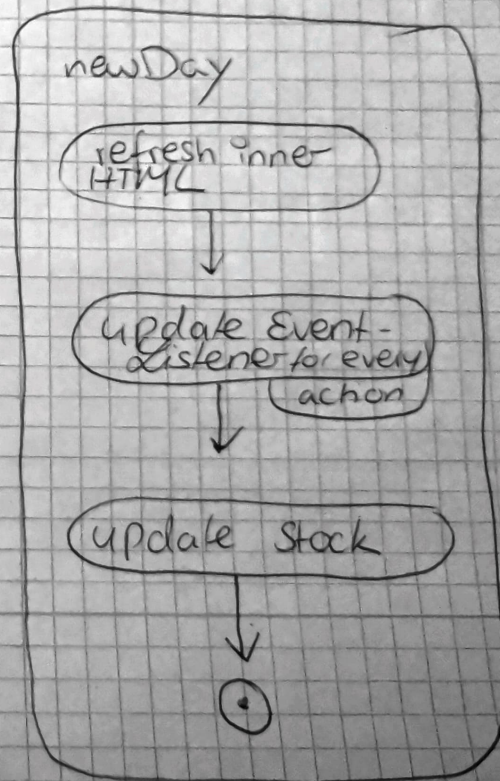 newDay
refresh inner
HTML
update Event-
Listener for every
action
update Stock